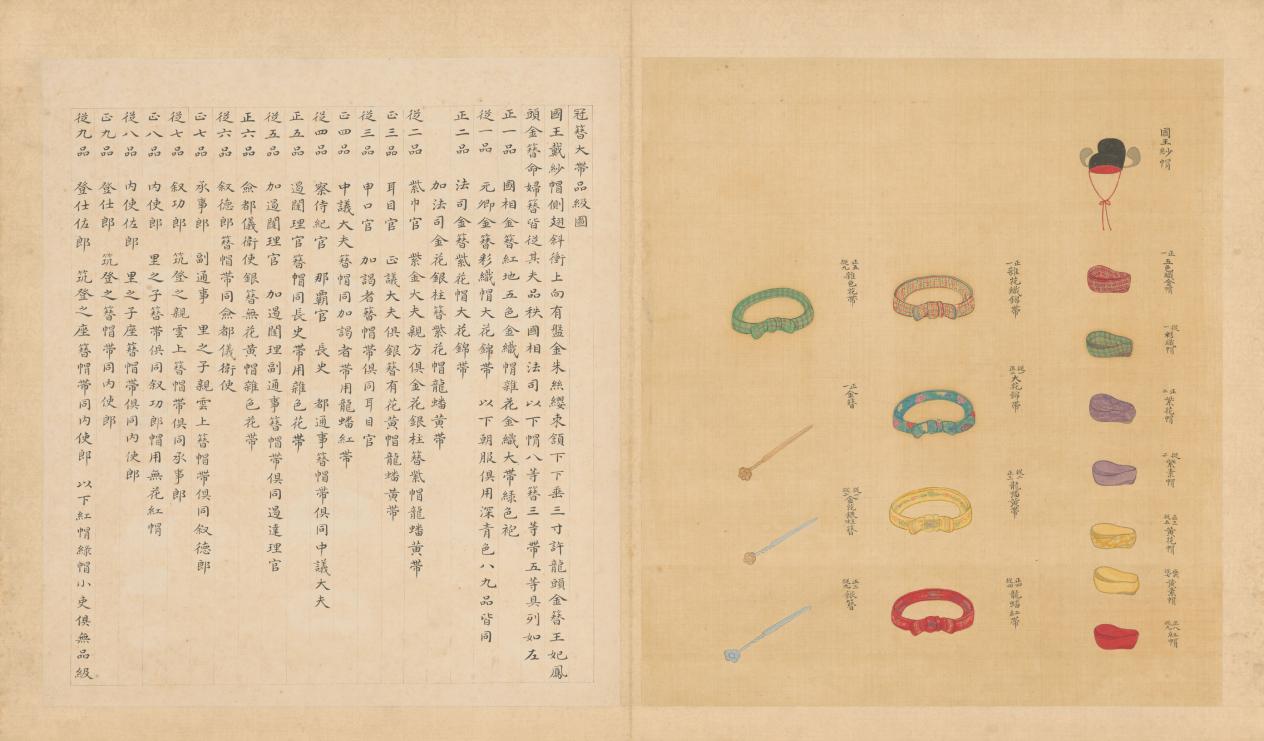 國王紗帽
正一五色織金帽
從一彩織帽
正二紫花帽
從二紫素帽
黃花帽
黃素帽
正八從九紅帽
正一雜花織錦帶
大花錦帶
龍蟠黃帶
正四從四龍蟠紅帶
正五從九雜色花帶
金簪
金花銀柱簪
正三從九銀簪
冠簪大帶品級圖
國王戴紗帽側翅斜衝上向有盤金朱絲纓束頷下下垂三寸許龍頭金簪王妃鳳
頭金簪命婦簪皆從其夫品秩國相法司以下帽八等簪三等帶五等具列如左
正一品 國相金簪紅地五色金織帽雜花金織大帶綠色袍
從一品 元卿金簪彩織帽大花錦帶 以下朝服俱用深青色八九品皆同
正二品 法司金簪紫花帽大花錦帶
加法司金花銀柱簪紫花帽龍蟠黃帶
從二品 紫巾官 紫金大夫親方俱金花銀柱簪紫帽龍蟠黃帶
正三品 耳目官 正議大夫俱銀簪有花黃帽龍蟠黃帶
從三品 申口官 加謁者簪帽帶俱同耳目官
正四品 中議大夫簪帽同加謁者帶用龍蟠紅帶
從四品 察侍紀官 那霸官 長史 都通事簪帽帶俱同中議大夫
正五品 遏闥理官簪帽同長史帶用雜色花帶
從五品 加遏闥理官 加遏闥理副通事簪帽帶俱同遏達理官
正六品 僉都儀衛使銀簪無花黃帽雜色花帶
從六品 叙德郎簪帽帶同僉都儀衛使
正七品 承事郎 副通事 里之子親雲上簪帽帶俱同叙德郎
從七品 叙功郎 筑登之親雲上簪帽帶俱同承事郎
正八品 內使郎 里之子簪帶俱同叙功郎帽用無花紅帽
從八品 內使佐郎 里之子座簪帽帶俱同內使郎
正九品 登仕郎 筑登之簪帽帶同內使郎
從九品 登仕佐郎 筑登之座簪帽帶同內使郎 以下紅帽綠帽小吏俱無品級